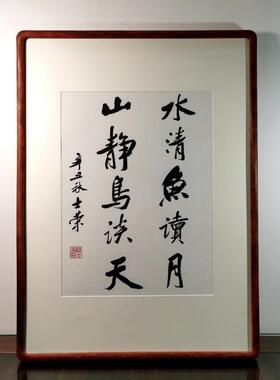 水清魚讀月
山静鳥談天
辛丑秋士荣